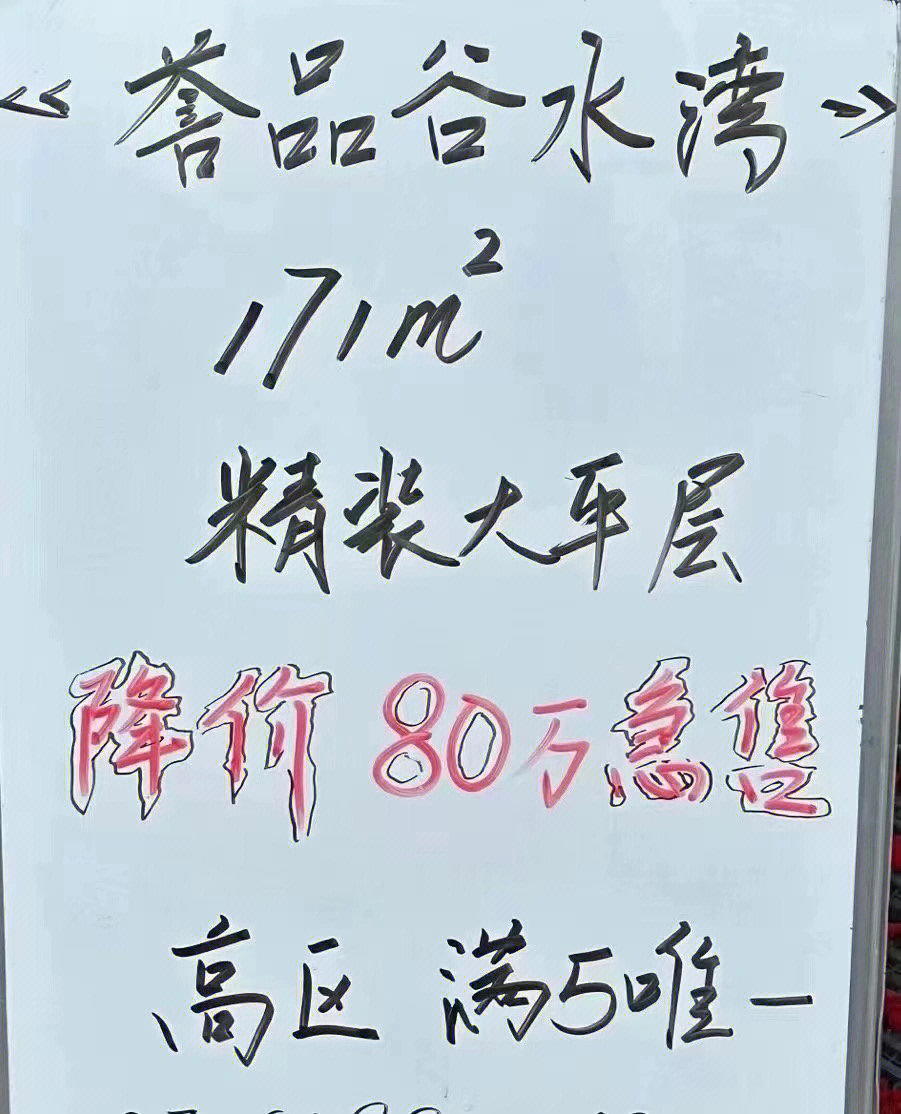 《誉品谷水湾》
171m²
精装大平层
降价80万急售
高区 满5唯一